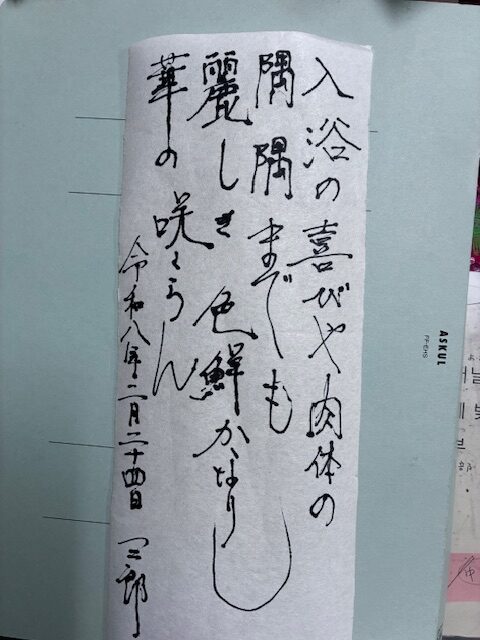 入浴の喜びや肉体の
隅隅までも
麗しき色鮮かなりし
華の咲くらん
令和八年二月二十四日 三郎
ASKUL
FP-EHS